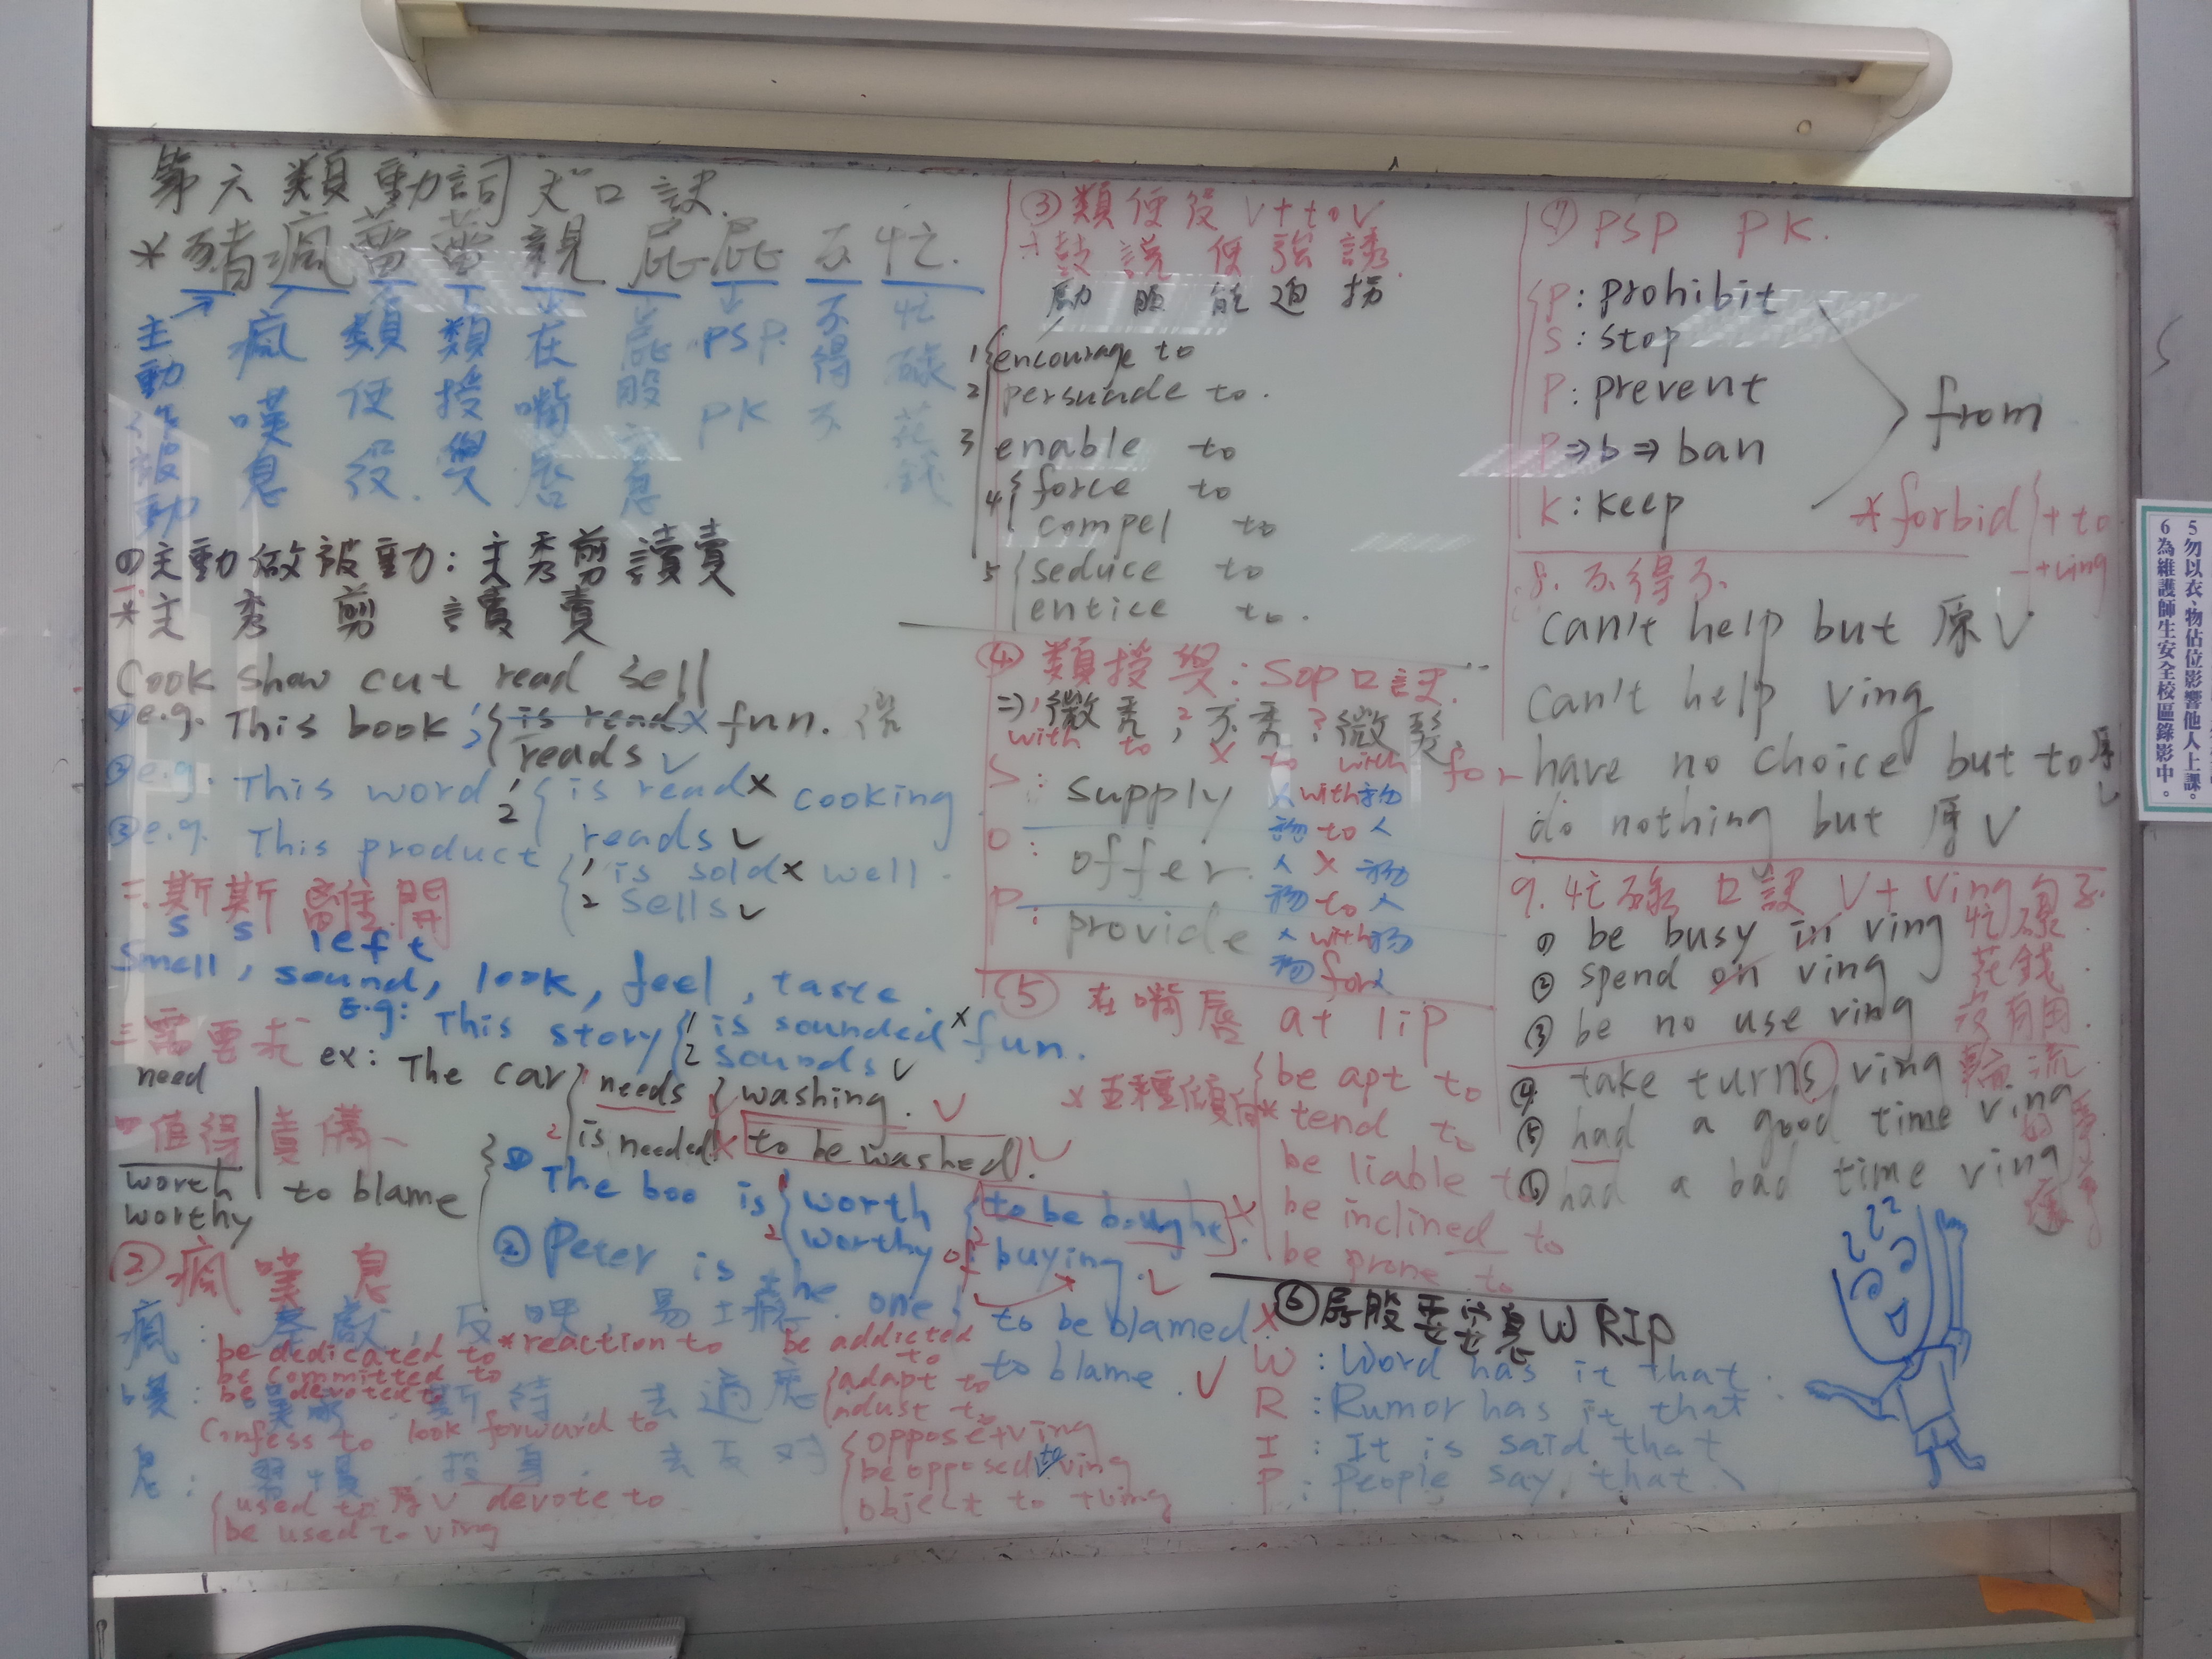 第六類動詞大口訣.
*豬瘋蕾蕾親屁屁不忙.
主動作被動 瘋嘆息 類使役. 類授與 在嘴唇 屁股 息 PSP PK 不得不 忙碌花錢
①主動做被動:主秀剪讀賣
*主 秀 剪 讀 賣
Cook show cut read sell
①e.g. This book {1 is read X 2 reads ✓ fun.
②e.g. This word {1 is read X 2 reads ✓ cooking
③e.g. This product {1 is sold X 2 sells ✓ well.
二.斯斯離開
S S left
Smell, sound, look, feel, taste.
E.g: This story {1 is sounded X 2 sounds ✓ fun.
三需要求
need
ex: The car {needs 2 is needed X {washing. ✓ to be washed. ✓
四值得 責備
worth
worthy
to blame
① The boo is {worth 2 worthy of {to be bought. X 2 buying. ✓
② Peter is the one, to be blamed X
to blame. ✓
② 瘋 嘆 息
瘋: 奉獻, 反映, 易上癮.
be dedicated to *reaction to be addicted to
be committed to
be devoted to
嘆: 期待, 去適應
Confess to look forward to {adapt to
adjust to
息: 習慣, 投身, 去反对
{used to 原V devote to
be used to ving
{oppose+ving
be opposed to ving
object to +ving
③類使役 V+to V
*鼓說使強誘.
勵服能迫拐
1 encourage to
2 persuade to.
3 enable to
4 {force to
compel to
5 {seduce to
entice to.
④ 類授與: SOP口訣.
⇒1微秀, 2不秀, 3微髮
with to X to with for
S: supply 人with物
物to人
O: offer. 人X物
物to人
P: provide 人with物
物for人
⑤ 在嘴唇 at lip
*五種傾向*
be apt to
tend to
be liable to
be inclined to
be prone to
⑥屁股要窒息 W RIP
W: Word has it that.
R: Rumor has it that
I: It is said that
P: People say that
⑦ PSP PK.
P: prohibit
S: stop
P: prevent
P⇒b⇒ban
K: keep
from
*forbid {+to
+ving
8. 不得不
can't help but 原V
can't help ving
have no choice but to原V
do nothing but 原V
9. 忙碌口訣 V+ Ving
① be busy in ving 忙碌
② spend on ving 花錢.
③ be no use ving 沒有用.
④ take turns ving 輪流
⑤ had a good time ving
⑥ had a bad time ving
5 勿以衣、物佔位影響他人上課。
6 為維護師生安全校區錄影中。